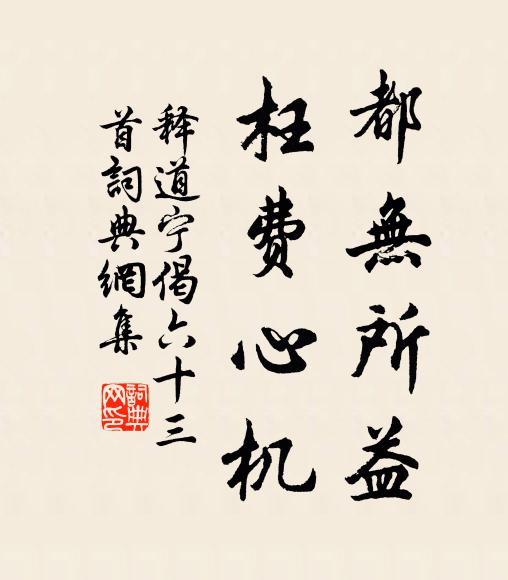 都無所益
枉費心机
释道宁偈六十三
首詞典網集
詞典
网印